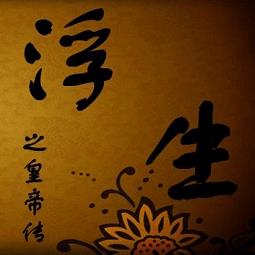 浮生
之皇帝传